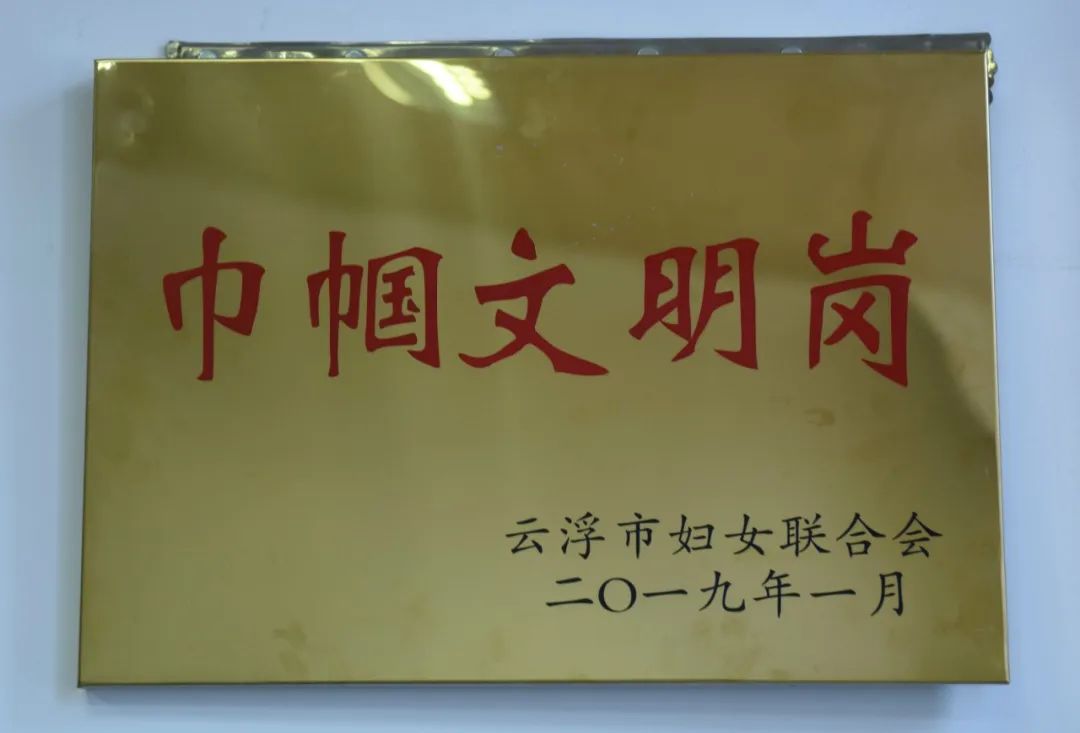 巾帼文明岗
云浮市妇女联合会
二〇一九年一月